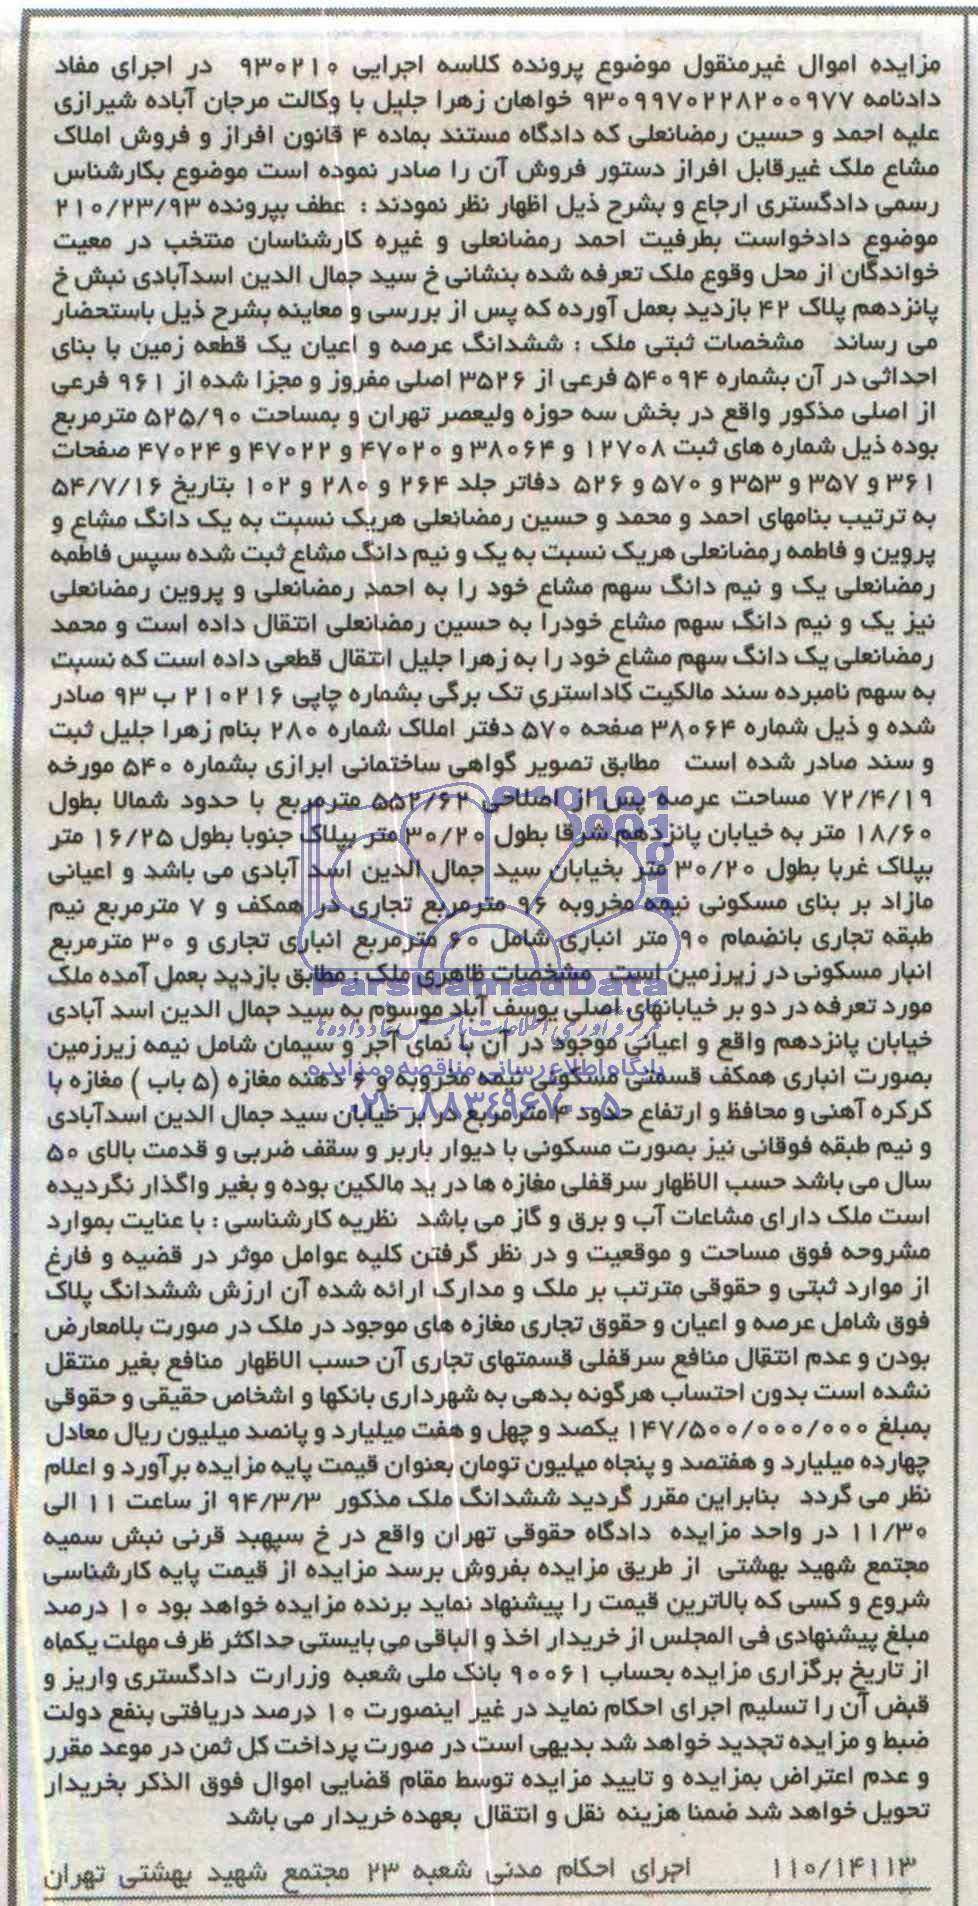 مزایده اموال غیرمنقول موضوع پرونده کلاسه اجرایی ۹۳۰۲۱۰ در اجرای مفاد
دادنامه ۹۳۰۹۹۷۰۲۲۸۲۰۰۹۷۷ خواهان زهرا جلیل با وکالت مرجان آباده شیرازی
علیه احمد و حسین رمضانعلی که دادگاه مستند بماده ۴ قانون افراز و فروش املاک
مشاع ملک غیرقابل افراز دستور فروش آن را صادر نموده است موضوع بکارشناس
رسمی دادگستری ارجاع و بشرح ذیل اظهار نظر نمودند : عطف بپرونده ۲۱۰/۲۳/۹۳
موضوع دادخواست بطرفیت احمد رمضانعلی و غیره کارشناسان منتخب در معیت
خواندگان از محل وقوع ملک تعرفه شده بنشانی خ سید جمال الدین اسدآبادی نبش خ
پانزدهم پلاک ۴۲ بازدید بعمل آورده که پس از بررسی و معاینه بشرح ذیل باستحضار
می رساند مشخصات ثبتی ملک : ششدانگ عرصه و اعیان یک قطعه زمین با بنای
احداثی در آن بشماره ۵۴۰۹۴ فرعی از ۳۵۲۶ اصلی مفروز و مجزا شده از ۹۶۱ فرعی
از اصلی مذکور واقع در بخش سه حوزه ولیعصر تهران و بمساحت ۵۲۵/۹۰ مترمربع
بوده ذیل شماره های ثبت ۱۲۷۰۸ و ۳۸۰۶۴ و ۴۷۰۲۰ و ۴۷۰۲۲ و ۴۷۰۲۴ صفحات
۳۶۱ و ۳۵۷ و ۳۵۳ و ۵۷۰ و ۵۲۶ دفاتر جلد ۲۶۴ و ۲۸۰ و ۱۰۲ بتاریخ ۵۴/۷/۱۶
به ترتیب بنامهای احمد و محمد و حسین رمضانعلی هریک نسبت به یک دانگ مشاع و
پروین و فاطمه رمضانعلی هریک نسبت به یک و نیم دانگ مشاع ثبت شده سپس فاطمه
رمضانعلی یک و نیم دانگ سهم مشاع خود را به احمد رمضانعلی و پروین رمضانعلی
نیز یک و نیم دانگ سهم مشاع خودرا به حسین رمضانعلی انتقال داده است و محمد
رمضانعلی یک دانگ سهم مشاع خود را به زهرا جلیل انتقال قطعی داده است که نسبت
به سهم نامبرده سند مالکیت کاداستری تک برگی بشماره چاپی ۲۱۰۲۱۶ ب ۹۳ صادر
شده و ذیل شماره ۳۸۰۶۴ صفحه ۵۷۰ دفتر املاک شماره ۲۸۰ بنام زهرا جلیل ثبت
و سند صادر شده است مطابق تصویر گواهی ساختمانی ابرازی بشماره ۵۴۰ مورخه
۷۲/۴/۱۹ مساحت عرصه پس از اصلاحی ۵۵۲/۶۲ مترمربع با حدود شمالا بطول
۱۸/۶۰ متر به خیابان پانزدهم شرقا بطول ۳۰/۲۰ متر بپلاک جنوبا بطول ۱۶/۲۵ متر
بپلاک غربا بطول ۳۰/۲۰ متر بخیابان سید جمال الدین اسد آبادی می باشد و اعیانی
مازاد بر بنای مسکونی نیمه مخروبه ۹۶ مترمربع تجاری در همکف و ۷ مترمربع نیم
طبقه تجاری بانضمام ۹۰ متر انباری شامل ۶۰ مترمربع انباری تجاری و ۳۰ مترمربع
انبار مسکونی در زیرزمین است مشخصات ظاهری ملک : مطابق بازدید بعمل آمده ملک
ParsNamadData
مورد تعرفه در دو بر خیابانهای اصلی یوسف آباد موسوم به سید جمال الدین اسد آبادی
خیابان پانزدهم واقع و اعیانی موجود در آن با نمای آجر و سیمان شامل نیمه زیرزمین
پایگاه اطلاع رسانی مناقصه و مزایده
بصورت انباری همکف قسمتی مسکونی نیمه مخروبه و ۶ دهنه مغازه (۵ باب ) مغازه با
۰۲۱-۸۸۳۴۹۶۷۰-۵
کرکره آهنی و محافظ و ارتفاع حدود ۴ مترمربع در بر خیابان سید جمال الدین اسدآبادی
و نیم طبقه فوقانی نیز بصورت مسکونی با دیوار باربر و سقف ضربی و قدمت بالای ۵۰
سال می باشد حسب الاظهار سرقفلی مغازه ها در ید مالکین بوده و بغیر واگذار نگردیده
است ملک دارای مشاعات آب و برق و گاز می باشد نظریه کارشناسی : با عنایت بموارد
مشروحه فوق مساحت و موقعیت و در نظر گرفتن کلیه عوامل موثر در قضیه و فارغ
از موارد ثبتی و حقوقی مترتب بر ملک و مدارک ارائه شده آن ارزش ششدانگ پلاک
فوق شامل عرصه و اعیان و حقوق تجاری مغازه های موجود در ملک در صورت بلامعارض
بودن و عدم انتقال منافع سرقفلی قسمتهای تجاری آن حسب الاظهار منافع بغیر منتقل
نشده است بدون احتساب هرگونه بدهی به شهرداری بانکها و اشخاص حقیقی و حقوقی
بمبلغ ۱۴۷/۵۰۰/۰۰۰/۰۰۰ یکصد و چهل و هفت میلیارد و پانصد میلیون ریال معادل
چهارده میلیارد و هفتصد و پنجاه میلیون تومان بعنوان قیمت پایه مزایده برآورد و اعلام
نظر می گردد بنابراین مقرر گردید ششدانگ ملک مذکور ۹۴/۳/۳ از ساعت ۱۱ الی
۱۱/۳۰ در واحد مزایده دادگاه حقوقی تهران واقع در خ سپهبد قرنی نبش سمیه
مجتمع شهید بهشتی از طریق مزایده بفروش برسد مزایده از قیمت پایه کارشناسی
شروع و کسی که بالاترین قیمت را پیشنهاد نماید برنده مزایده خواهد بود ۱۰ درصد
مبلغ پیشنهادی فی المجلس از خریدار اخذ و الباقی می بایستی حداکثر ظرف مهلت یکماه
از تاریخ برگزاری مزایده بحساب ۹۰۰۶۱ بانک ملی شعبه وزرارت دادگستری واریز و
قبض آن را تسلیم اجرای احکام نماید در غیر اینصورت ۱۰ درصد دریافتی بنفع دولت
ضبط و مزایده تجدید خواهد شد بدیهی است در صورت پرداخت کل ثمن در موعد مقرر
و عدم اعتراض بمزایده و تایید مزایده توسط مقام قضایی اموال فوق الذکر بخریدار
تحویل خواهد شد ضمنا هزینه نقل و انتقال بعهده خریدار می باشد
۱۱۰/۱۴۱۱۳ اجرای احکام مدنی شعبه ۲۳ مجتمع شهید بهشتی تهران